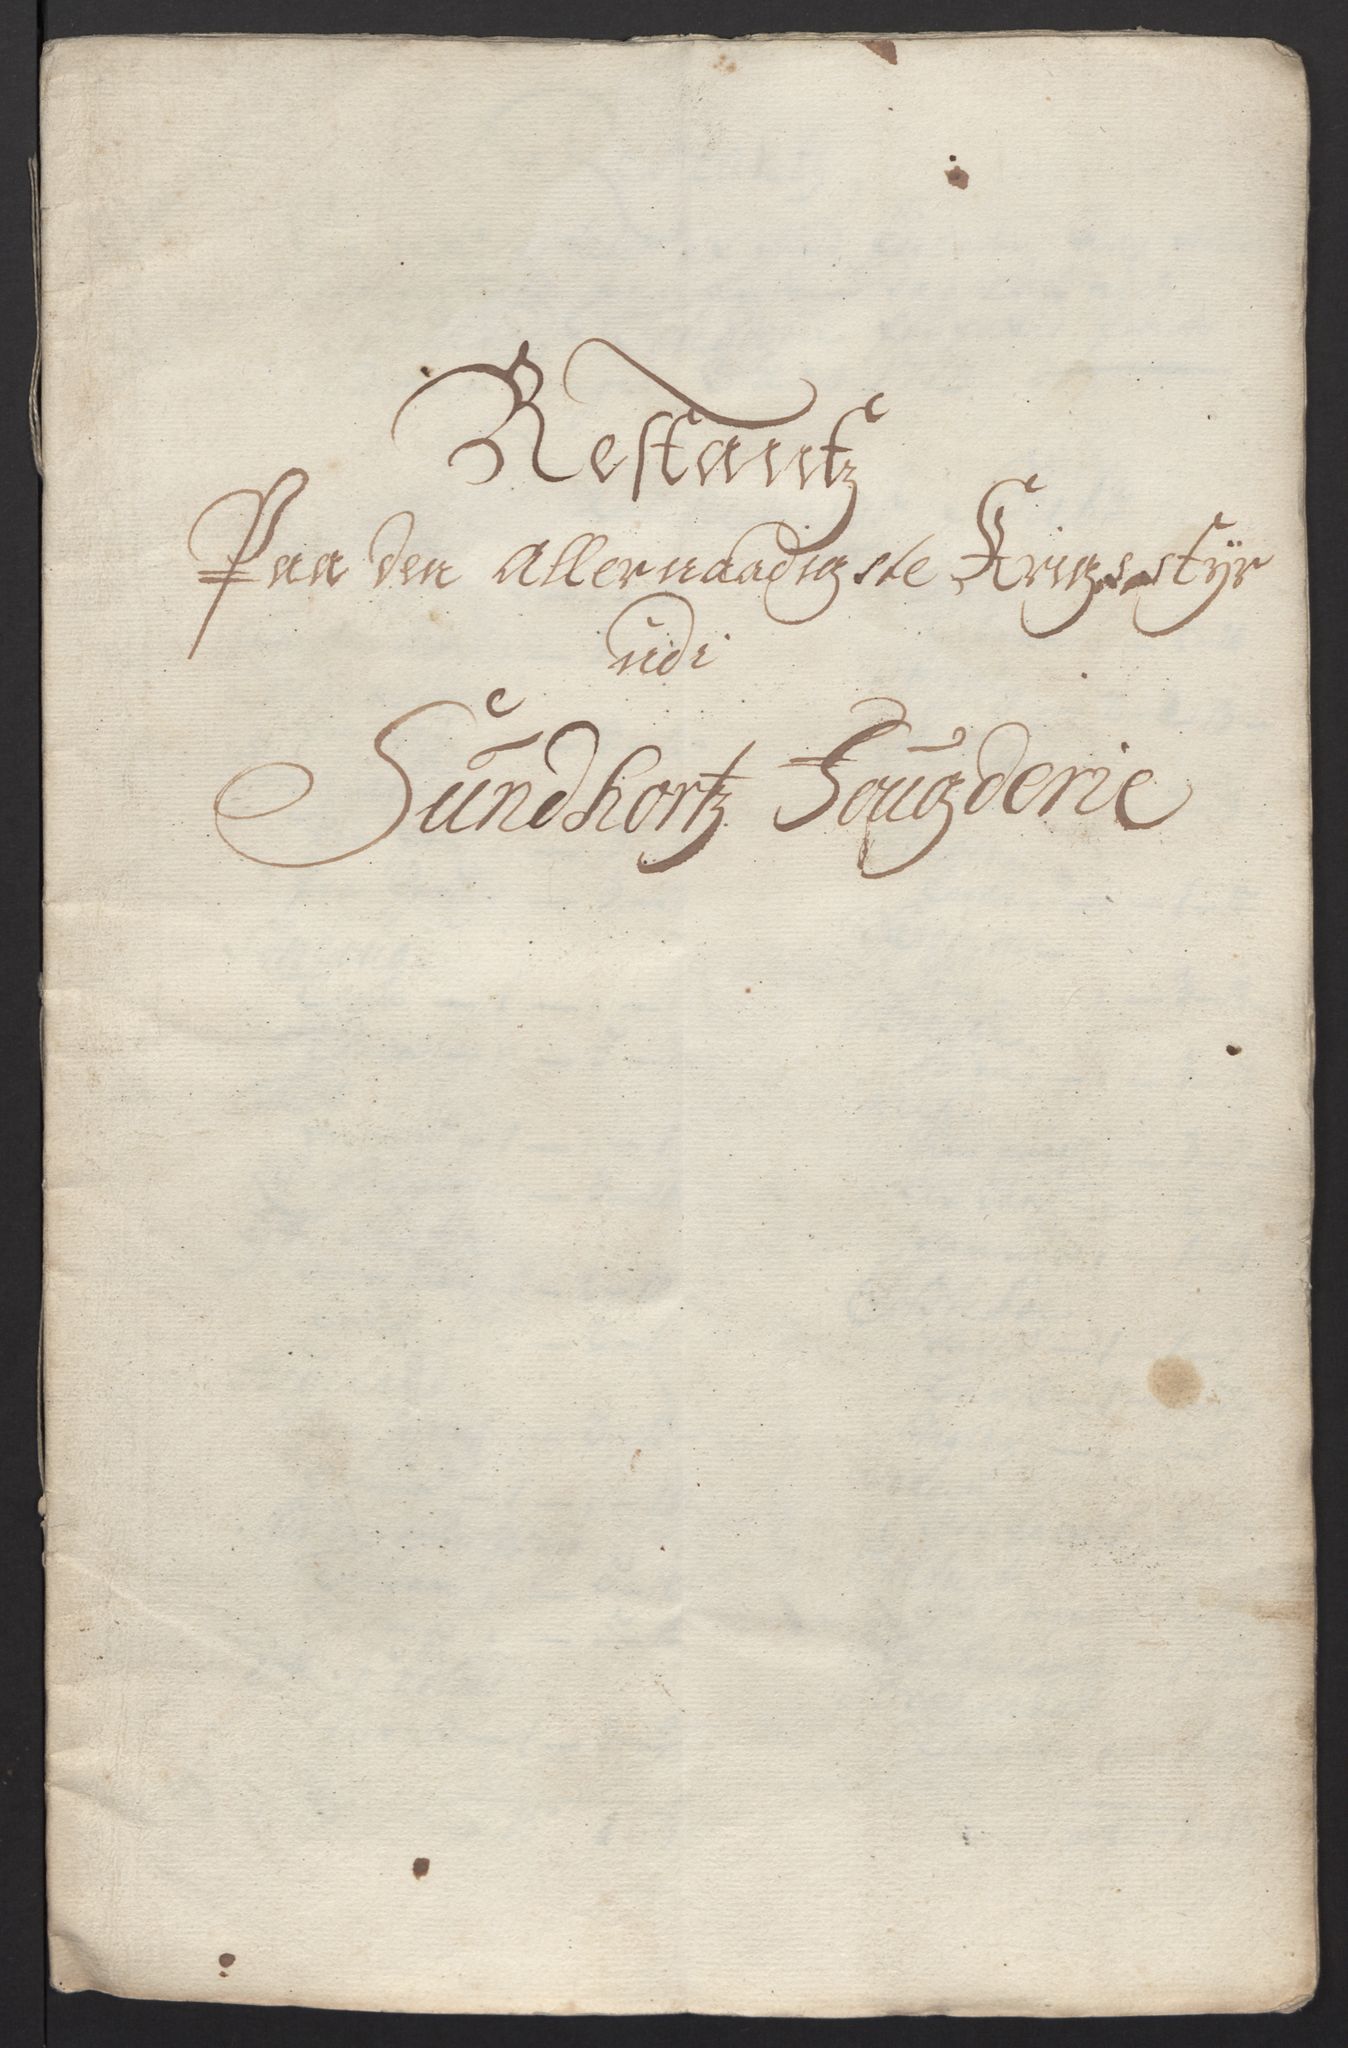 Restantz
Paa den Allernaadigste Krigs styr
udi
Sundhortz Fougderie